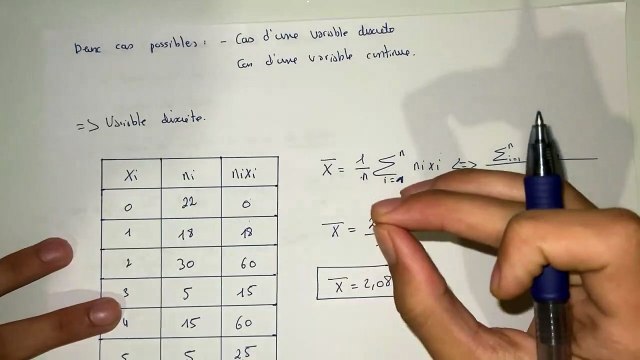 Deux cas possibles : - Cas d'une variable discrete
Cas d'une variable continue.
=> Variable discrete.
Xi ni nixi
0 22 0
1 18 18
2 30 60
3 5 15
4 15 60
5 5 25
X̄ = 1/n Σ i=1 n nixi <=> Σ i=1 n
X̄ =
X̄ = 2,08